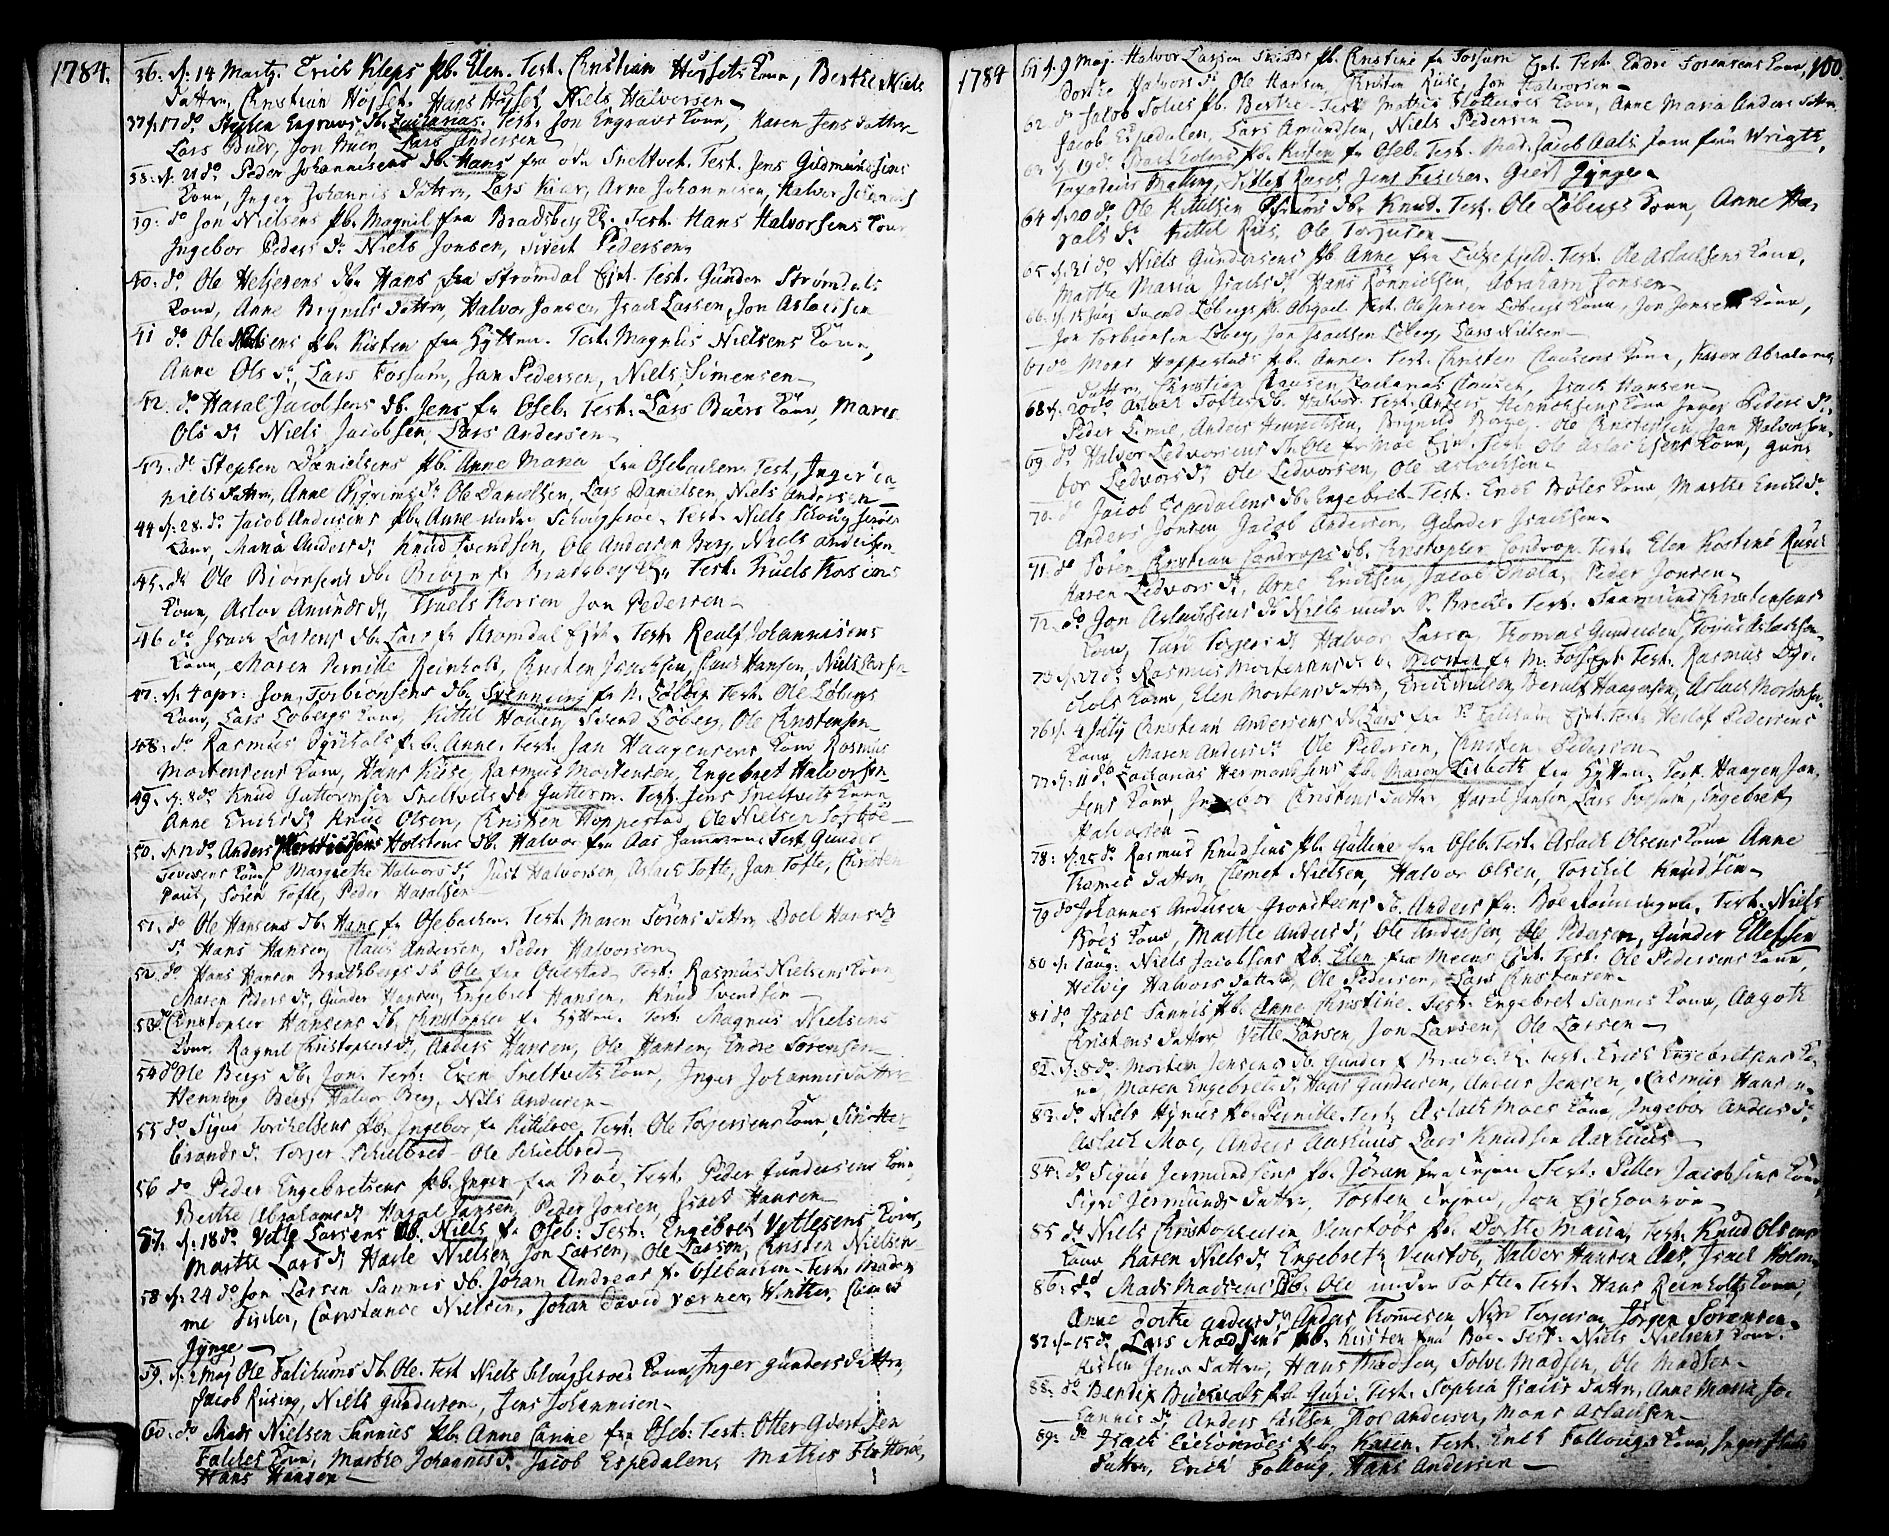 1784.
36. d. 14 Martz. Erich Kleps pb. Elen. Test. Christian Høysets Kone, Berthe Niels
Datter, Christian Højset. Hans Højset, Niels Halvorsen
37 d. 17 do Stephen Engravs db. Zacharias. Test. Jon Engravs Kone, Karen Jens datter
Lars Budr, Jon Buer, Lars Andersen
38. d. 21 do Peder Johannesens db. Hans fra odn Sneltvet. Test. Jens Gudmundsens
Kone, Inger Johannis Datter, Lars Kiær, Arne Johannesen, Halvor
39. do Jon Nielsens pb. Magnil fra Bradsberg Test. Hans Halvorsens Kone
Ingebor Peders dr Niels Jonsen, Siver Pedersen
40. do Ole Helgesens db. Hans fra Strømdal Ejet. Test. Gunder Strømdals
Kone, Anne Brynils Datter, Halvor Jonsen, Isach Larsen, Jon Aslacsen
41 do Ole Nielsens pb. Kisten fra Hytten. Test. Magnus Nielsens Kone,
Anne Ols dr, Lars Fossum, Jan Pedersen, Niels Simensen
42. do Haral Jacobsens db. Jens fr Oseb. Test. Lars Buers Kone, Maren
Ols dr Niels Jacobsen, Lars Andersen
43. do Stephen Danielsens pb. Anne Maria fra Osebachen Test, Inger Da
niels datter, Anne Pilgrims dr Ole Danielsen, Lars Danielsen, Niels Andersen
44 d. 28. do Jacob Andersens pb. Anne under Schougseroe. Test. Niels Schougseroes
Kone, Maria Anders dr Knud Svendsen, Ole Andersen Berg, Niels Andersen
45. do Ole Biørnsens db. fr Bradsberg Test. Truels Korsens
Kone, Aslou Amunds dr, Truels Korsen Jon Pedersen
46 do Isach Larsens db. Lars fr Strømdal Ejet. Test. Realf Johannesens
Kone, Maren Pernille Reinholt, Christen Isachsen, Claus Hansen, Niels Larsen
47. d. 4 apr: Jon Torbionsens db. Svenning fr N. Løberg Test. Ole Løbergs
Kone, Lars Løbergs Kone, Kittil Houen, Svend Løberg, Ole Christensen
48. do Rasmus Dyrkols p. b. Anne. Test. Jan Haagensens Kone Rasmus
Mortensens Kone, Hans Kise, Rasmus Mortensen, Engebret Halvorsen
49. d. 8 do Knud Guttormsen Sneltvets db Guttorm. Test. Jens Sneltvets Kone
Anne Erichs dr Knud Olsen, Christen Hoppestad, Ole Nielsen
50. d. 12 do Anders Holstens db. Halvor fra Aas Test. Gunder
Kone, Margrethe Halvors dr, Just Halvorsen, Aslach Tofte, Jan Tofte, Christen
Søren Tofte, Peder Haralsen
51. do Ole Hansens db. Hans fr Osebachen. Test. Maren Sørens datter Boel Hans dr
dr Hans Hansen Claus Andersen, Peder Halvorsen
52. do Hans Hansen Bradsbergs db. Ole fra Test: Rasmus Nielsens Kone
Maren Peders dr, Gunder Hansen, Engebret Hansen, Knud Svendsen
53 do Christopher Hansens db. Christopher fr Hytten. Test. Magnus Nielsens
Kone, Ragnil Christophers dr, Anders Hansen, Ole Hansen, Endre Sørensen
54 do Ole Bergs db. Jon. Test: Even Sneltvets Kone Inger Johannis datter
Henning Berg, Halvor Berg, Nils Andersen
55 do Sigur Torchelsens pb. Ingebor fr Kitilroe, Test. Ole Torgersens Kone,
brands dr Torger Schielbred. Ole Schielbred
56 do Peder Engebretsens pb. Inger fra Boe, Test. Peder Gundersens Kone
Berthe Abrahams dr Haral Jansen, Peder Jonsen, Isach Hansen
57. d. 18 do Vetle Larsens db. Niels fr Oseb: Test: Engebret Vetlesens Kone,
Marthe Lars dr Harle Nielsen, Jon Larsen, Ole Larsen, Christen Nielsen
58 d. 24 do Jon Larsen Sannes db. Johan Andreas fr Osebachen Test. Madm
me Fischer, Constance Nielsen, Johan David Værner, Winther,
Jynge
59. d. 2 Maj Ole Falchums db. Ole. Test Niels Schougseroes Kone, Inger Gunders datter,
Jacob Rising, Niels Gundersen, Jens Johannesen
60. do Mads Nielsen Sannis pb. Anne fra Oseb: Test: Otter
Faldes Kone, Marthe Johannis dr. Jacob Espedalen, Mathis Flottore,
Hans Hansen
1784
100
61 d. 9 Maj. Halvor Larsen pb. Christine fr Fossum Ejet. Test. Endre Sørensens Kone,
Dorthe Halvors dr Ole Hansen, Christen Kise, Jon Halvorsen
62. do Jacob Solies pb. Berthe Test. Mathis Flottores Kone, Anne Maria Anders datter
Jacob Espedalen, Lars Amundsen, Niels Pedersen
63 d. 19 do pb. Kisten fr Oseb. Test. Mad. Jacob Aals Jomfru Wrigth,
Inspecteur Malling, Ditlef Rasch, Jens Fischer. Giert Jynge
64 d. 20 do Ole Kittilsen db. Knud. Test. Ole Løbergs Kone, Anne Ha
rals dr Kittil Riis, Ole Torjusen
65 d. 31 do Niels Gundersens pb Anne fra Luksefjeld. Test. Ole Aslachsens Kone,
Marthe Maria Isachs dr, Hans Rønnielsen, Abraham Jonsen
66. d. 15 Juny Svend Løbergs pb. Abigael. Test. Ole Jensen Løbergs Kone, Jon Jonsens Kone,
Jon Torbionsen Løberg, Jon Isachsen Løberg, Lars Nielsen
67 do Mons Hoppestads pb. Anne. Test. Christen Clausens Kone, Karen Abrahams
Datter, Christian Clausen, Zacharias Clausen, Isach Hansen
68 d. 20 do Aslach Toftes db. Halvor Test. Anders Henrichsens Kone Inger Peders dr,
Peder Limie, Anders Henrichsen, Brynild Berge, Ole Christensen, Jan Halvorsen
69 do Halvor Ledvorsens db Ole fr Moe Ejet. Test. Ole Aslachsens Kone, Gune
bor Ledvors dr, Ole Ledvorsen, Ole Aslachsen
70. do Jacob Espedalens db. Engebret. Test. Erich Kone, Marthe Erichs dr.
Anders Jonsen Jacob Andersen, Gunder Isachsen
71. do Søren Christian Condrops db. Christopher Condrop. Test. Elen Kistine Rusch
Karen Ledvors dr, Arne Ericksen, Jacob Peder Jonsen
72. do Jon Aslachsens db Niels under N. Brecke. Test. Saamund Christensens
Kone, Turi Torgers dr Halvor Larsen, Thomas Gundersen, Torjus Aslachsen
73 d. 27 do Rasmus Mortensens db. Morten fr M. Fossum Test. Rasmus Dyr
chols Kone, Elen Mortens datter, Erich Nielsen, Berulf Haagensen, Aslach Mortensen
76. d. 4 July Christian Andersens db Lars fra Ejet. Test. Herlof Pedersens
Kone, Maren Anders dr Ole Pedersen, Christen Pedersen
77. d. 11 do Zacharias Hermansens pb. Maren Lisbeth fra Hytten, Test. Haagen Jan
sens Kone, Ingebor Christens datter Haral Jansen, Lars Fossum, Engebret
Halvorsen
78: d. 25 do Rasmus Knudsens pb. Gulline fra Oseb. Test. Aslach Olsens Kone Anne
Thomes datter Clemet Nielsen, Halvor Olsen, Torchil Knudsen
79 do Johannes Andersen Grondteens db. Anders fr. Boe Test. Niels
Boes Kone, Marthe Anders dr, Ole Andersen, Ole Pedersen, Gunder Ellefsen
80 d. 1 aug: Niels Jacobsens pb. Elen fra Meens Ejet. Test: Ole Pedersens Kone,
Helvig Halvors datter, Ole Pedersen, Lars Christensen
81 do Isach Sannis pb. Anne Kristine. Test. Engebret Sannes Kone, Aagoth
Christens datter Vetle Larsen, Jon Larsen, Ole Larsen
82. d. 8 do Morten Jensens db. Gunder fr Test. Erich Engebretsens Ko
ne, Maren Engebrets dr Hans Gundersen, Anders Jensen, Rasmus Hansen
83. do Niels Hynies pb. Pernille. Test. Aslach Moes Kone, Ingebor Anders dr
Aslach Moe, Anders Aarhuus, Lars Knudsen Aarhuus
84. do Sigur Jermundsens pb. Jøran fra Test: Peller Jacobsens Kone
Sigri Jermunds datter, Tosten Jon Ejchonroe
85 do Niels Christophersen Venstøbs pb. Dorthe Maria. Test. Knud Olsens
Kone Karen Niels dr Engebreth Venstøb, Halvor Hansen Aas, Israel Holm
86. do Mads Madsens db. Ole under Tofte. Test. Hans Reinholts Kone,
Anne Dorthe Anders dr, Anders Thomesen, Niri Torgersen, Jørgen Sørensen
87 d. 15 do Lars Madsens pb. Kisten fra Boe. Test. Niels Nielsens Kone.
Kisten Jens datter, Hans Madsen, Solve Madsen, Ole Madsen
88. do Bendix pb. Test. Sophia Isacs datter, Anne Maria Jo
hannis dr, Anders Thor Andersen, Mons Aslachsen
89. do Isach Eichonroes pb. Karen. Test. Erich Follougs Kone, Inger Isach
Datter, Erich Folloug, Hans Andersen